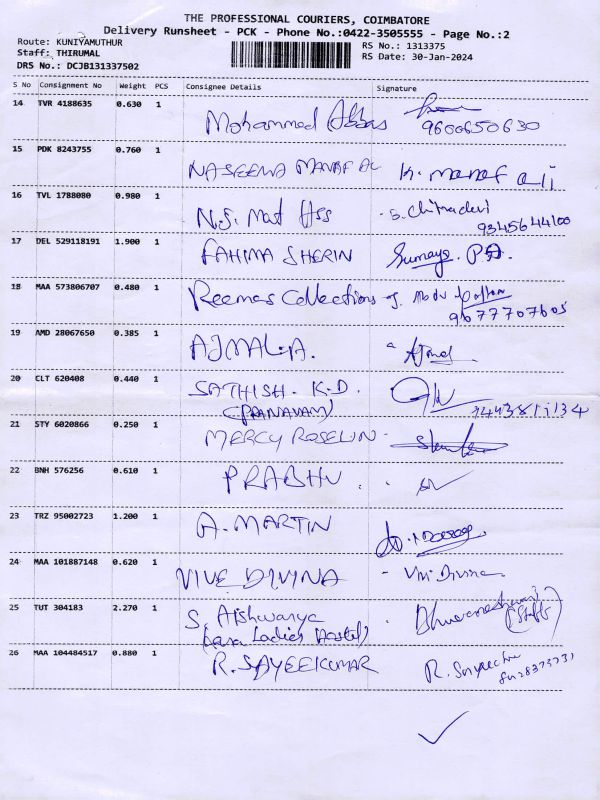 THE PROFESSIONAL COURIERS, COIMBATORE
Delivery Runsheet - PCK - Phone No.:0422-3505555 - Page No.:2
Route: KUNIYAMUTHUR
Staff: THIRUMAL
DRS No.: DCJB131337502
RS No.: 1313375
RS Date: 30-Jan-2024
S No Consignment No Weight PCS Consignee Details Signature
14 TVR 4188635 0.630 1 Mohammed Abbas 9600650630
15 PDK 8243755 0.760 1 NASEEMA MANAF ALI K. Manaf ali
16 TVL 1788080 0.980 1 N.S. Mat Hss S. Chitradevi
9345644100
17 DEL 529118191 1.900 1 FAHIMA SHERIN Sumaya. P
18 MAA 573806707 0.480 1 Reemas Collections
9677707605
19 AMD 28067650 0.385 1 AJMAL.A. Ajmal
20 CLT 620408 0.440 1 SATHISH. K.D.
(PRANAVAM)
21 STY 6020866 0.250 1 MERCY ROSELIN
22 BNH 576256 0.610 1 PRABHU
23 TRZ 95002723 1.200 1 A. MARTIN
24 MAA 101887148 0.620 1 VIVE DIVINA - Vivi Divina
25 TUT 304183 2.270 1 S. Aishwarya Bhuvaneshwari
Ladies Hostel) (Staff)
26 MAA 104484517 0.880 1 R. SAYEEKUMAR R.